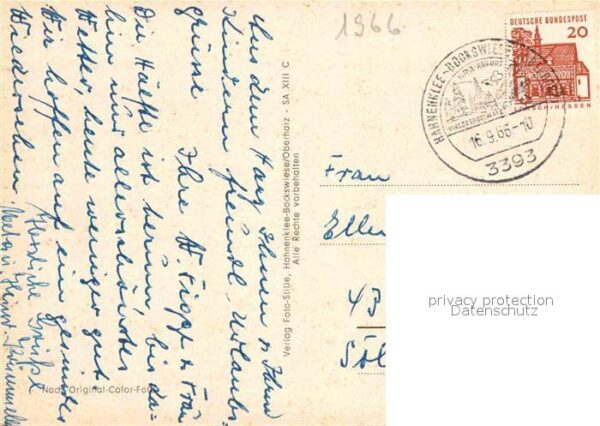 1966
DEUTSCHE BUNDESPOST
20
HAHNENKLEE-BOCKSWIESE
16.9.66-10
3393
Aus dem Harz Ihnen u. Ihren
Kindern freundl. Urlaubs-
grüsse
Ihre W. u. Frau
Die Hälfte ist herum, bis da-
hin nur allerschönstes
Wetter, heute weniger gut.
Wir hoffen auf ein gesundes
Wiedersehen.
Herzliche Grüße
Verlag Foto-Stille, Hahnenklee-Bockswiese/Oberharz - SA XIII C
Alle Rechte vorbehalten
Nach Original-Color-Foto
Frau
Elle
43
privacy protection
Datenschutz